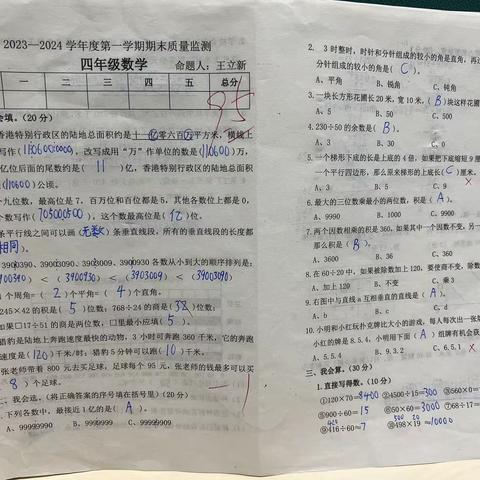 2023—2024学年度第一学期期末质量监测
四年级数学 命题人：王立新
一 二 三 四 五 总分
95
会填。(20分)
香港特别行政区的陆地总面积约是十一亿零六百万平方米，横线上
写作(1106000000)，改写成用“万”作单位的数是(110600)万，
亿位后面的尾数约是(11)亿，香港特别行政区的陆地总面积
(110600)公顷。
个九位数，最高位是7，百万位和百位都是5，其他各位都是0，
个数写作(705000500)，这个数最高位是(亿)位。
条平行线之间可以画(无数)条垂直线段，所有的垂直线段的长度都
相同)。
3900390、3900930、3903009、3900930各数从小到大的顺序排列是：
<(3900930)<(3903009)<(3903090)
1个周角=(2)个平角=(4)个直角。
245×42的积是(5)位数；768÷24的商是(38)位数；
如果□17÷51的商是两位数，□里最小应填(5)。
猎豹是陆地上奔跑速度最快的动物，3小时可奔跑360千米，它的奔跑
速度是(120)千米/时；猎豹5分钟可以跑(10)千米。
张老师带着800元去买足球，足球每个95元，张老师的钱最多可以买
8)个足球。
二、我会选。(将正确答案的序号填在括号里)(20分)
下列各数中，最接近1亿的是(A)。
A、99999999 B、9999999 C、99999909
2. 3时整时，时针和分针组成的较小的角是直角，再过
分针组成的较小的角是(C)。
A、平角 B、锐角 C、钝角
3.一块长方形花圃长20米，宽10米，(B)块这样花圃
A、5 B、50
4.230÷50的余数是(B)。
A、3 B、30 C、0
5.一个梯形下底的长是上底的4倍，如果把下底缩短9厘
一个平行四边形，那么原来梯形上底长(C)厘米。
A、3 B、5 C、9
6.最大的三位数乘最小的两位数，积是(A)。
A、9990 B、1000 C、9900
7.两个因数相乘的积是360，如果其中一个因数不变，另一
那么积是(B)。
A、3600 B、36 C、360
8.在60÷20中，如果被除数加上120，要使商不变，除数
A、加上120 B、不变 C、乘3
9.右图中与直线a互相垂直的直线是(A)。
A、b B、c C、d
10.小明和小红玩扑克牌比大小的游戏，每人每次出一张牌
小红的牌是8.5.4，小明用下面(A)组牌有机会获
A、5.5.4 B、9.3.2 C、6.5.1
三、我会算。(30分)
1.直接写得数。(10分)
①120×70=8400 ②4500÷15=300 ③560×0=
⑤900÷60=15 ⑥50×60=3000 ⑦68÷17=
⑨416÷60≈7 ⑩498×19≈10000